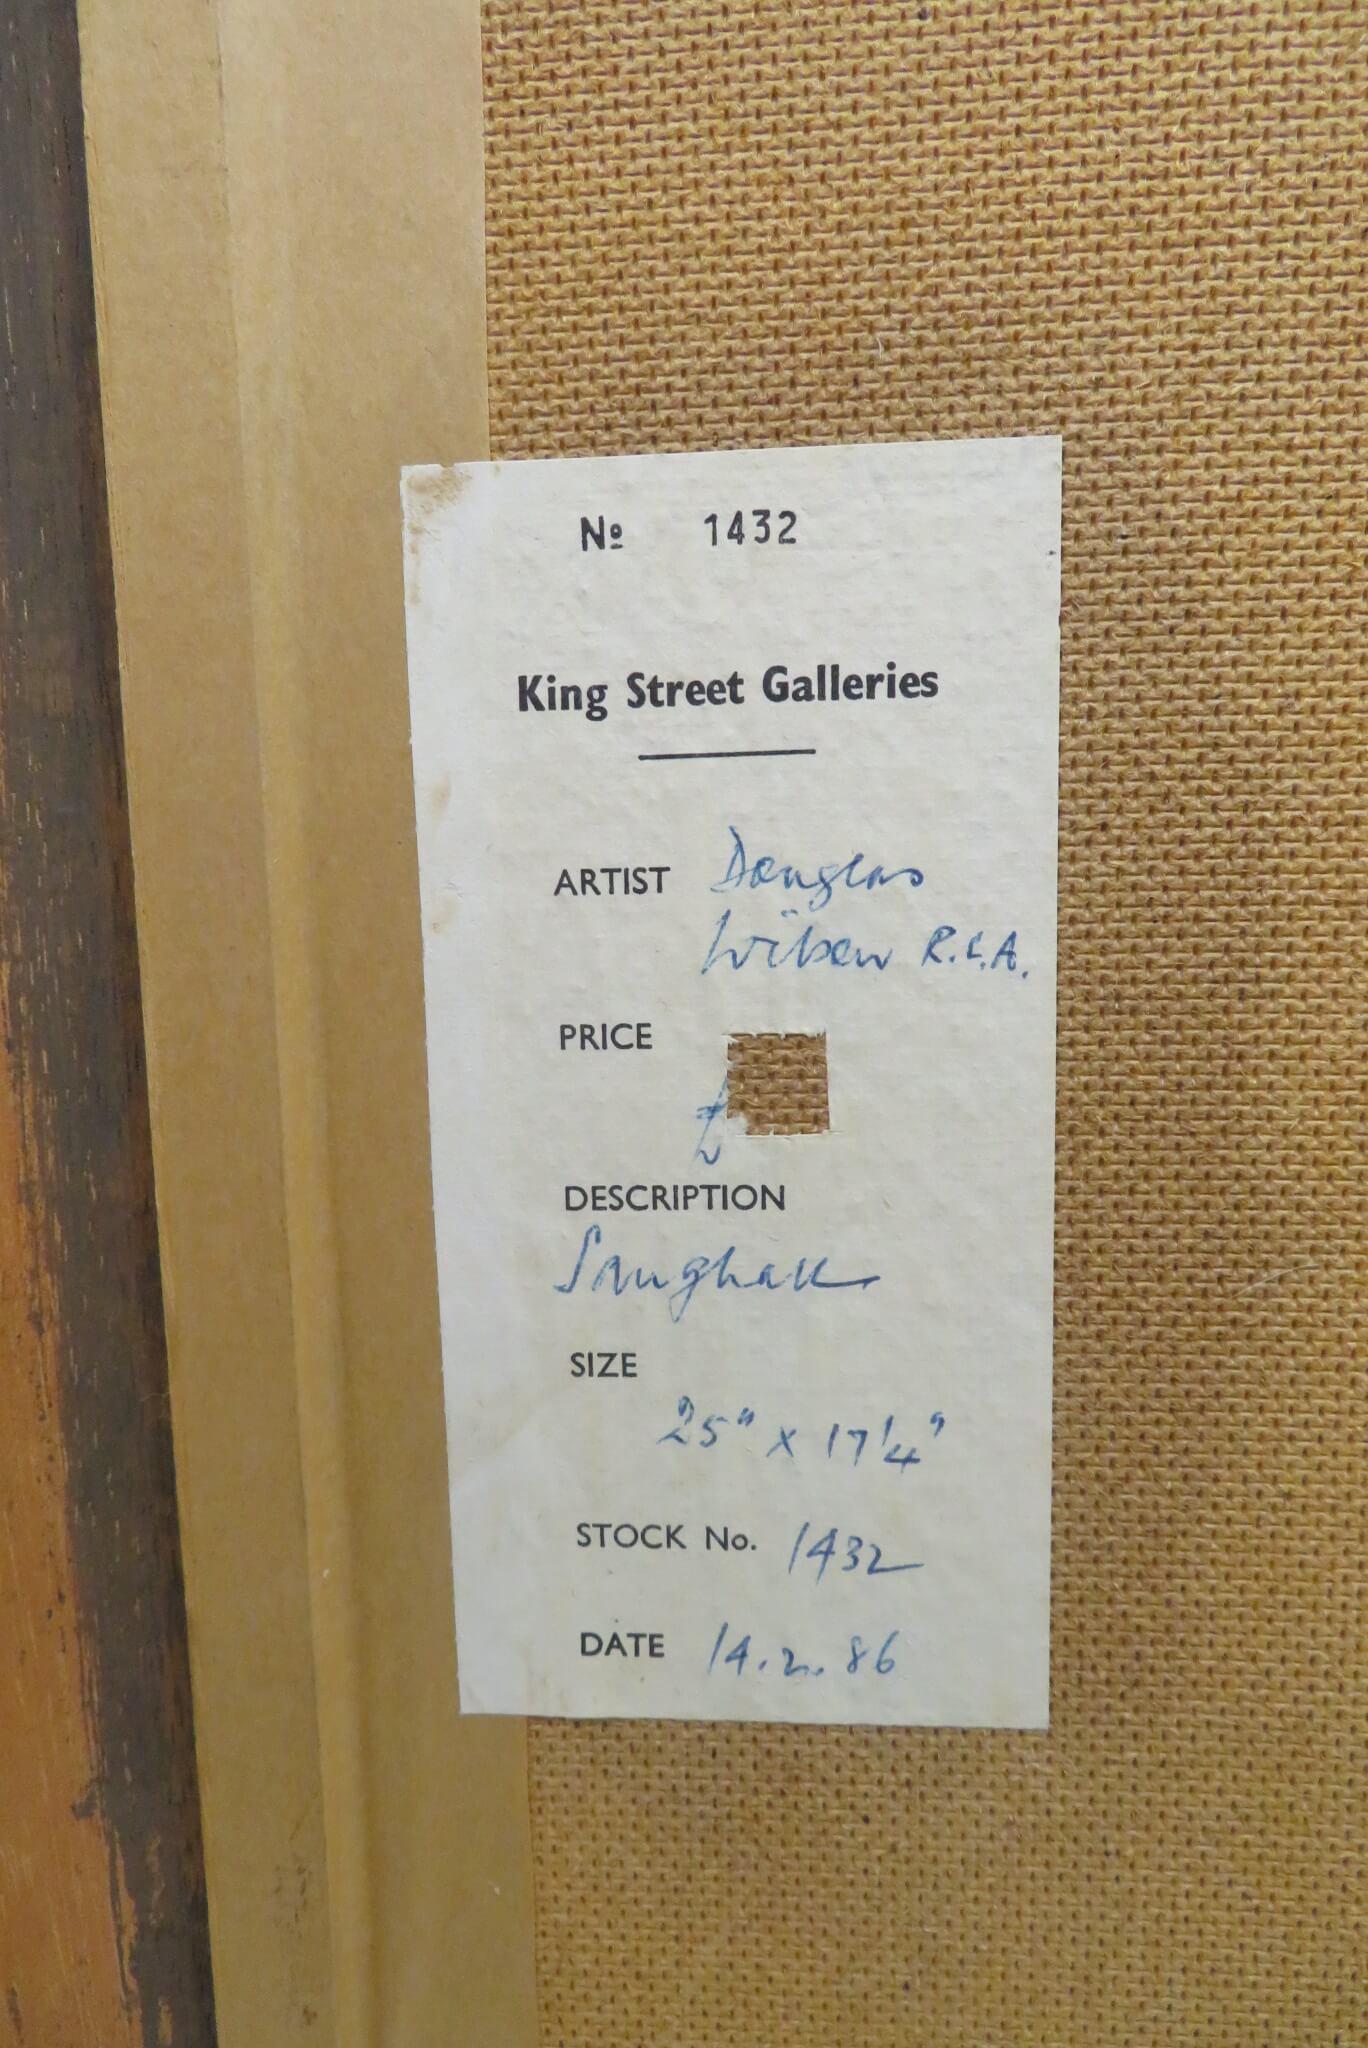 Nº 1432
King Street Galleries
ARTIST Douglas
Wilson R.C.A.
PRICE
£
DESCRIPTION
SIZE
25" x 17 1/4"
STOCK No. 1432
DATE 14.2.86